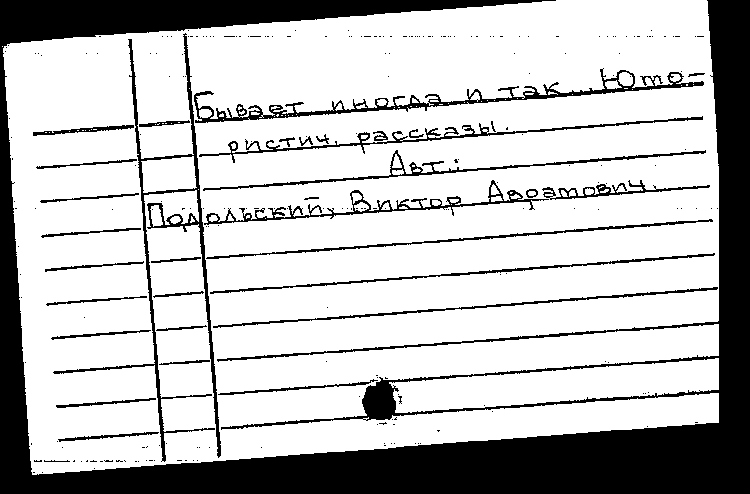 Бывает иногда и так... Юмо-
ристич. рассказы.
Авт.:
Подольский, Виктор Аврамович.